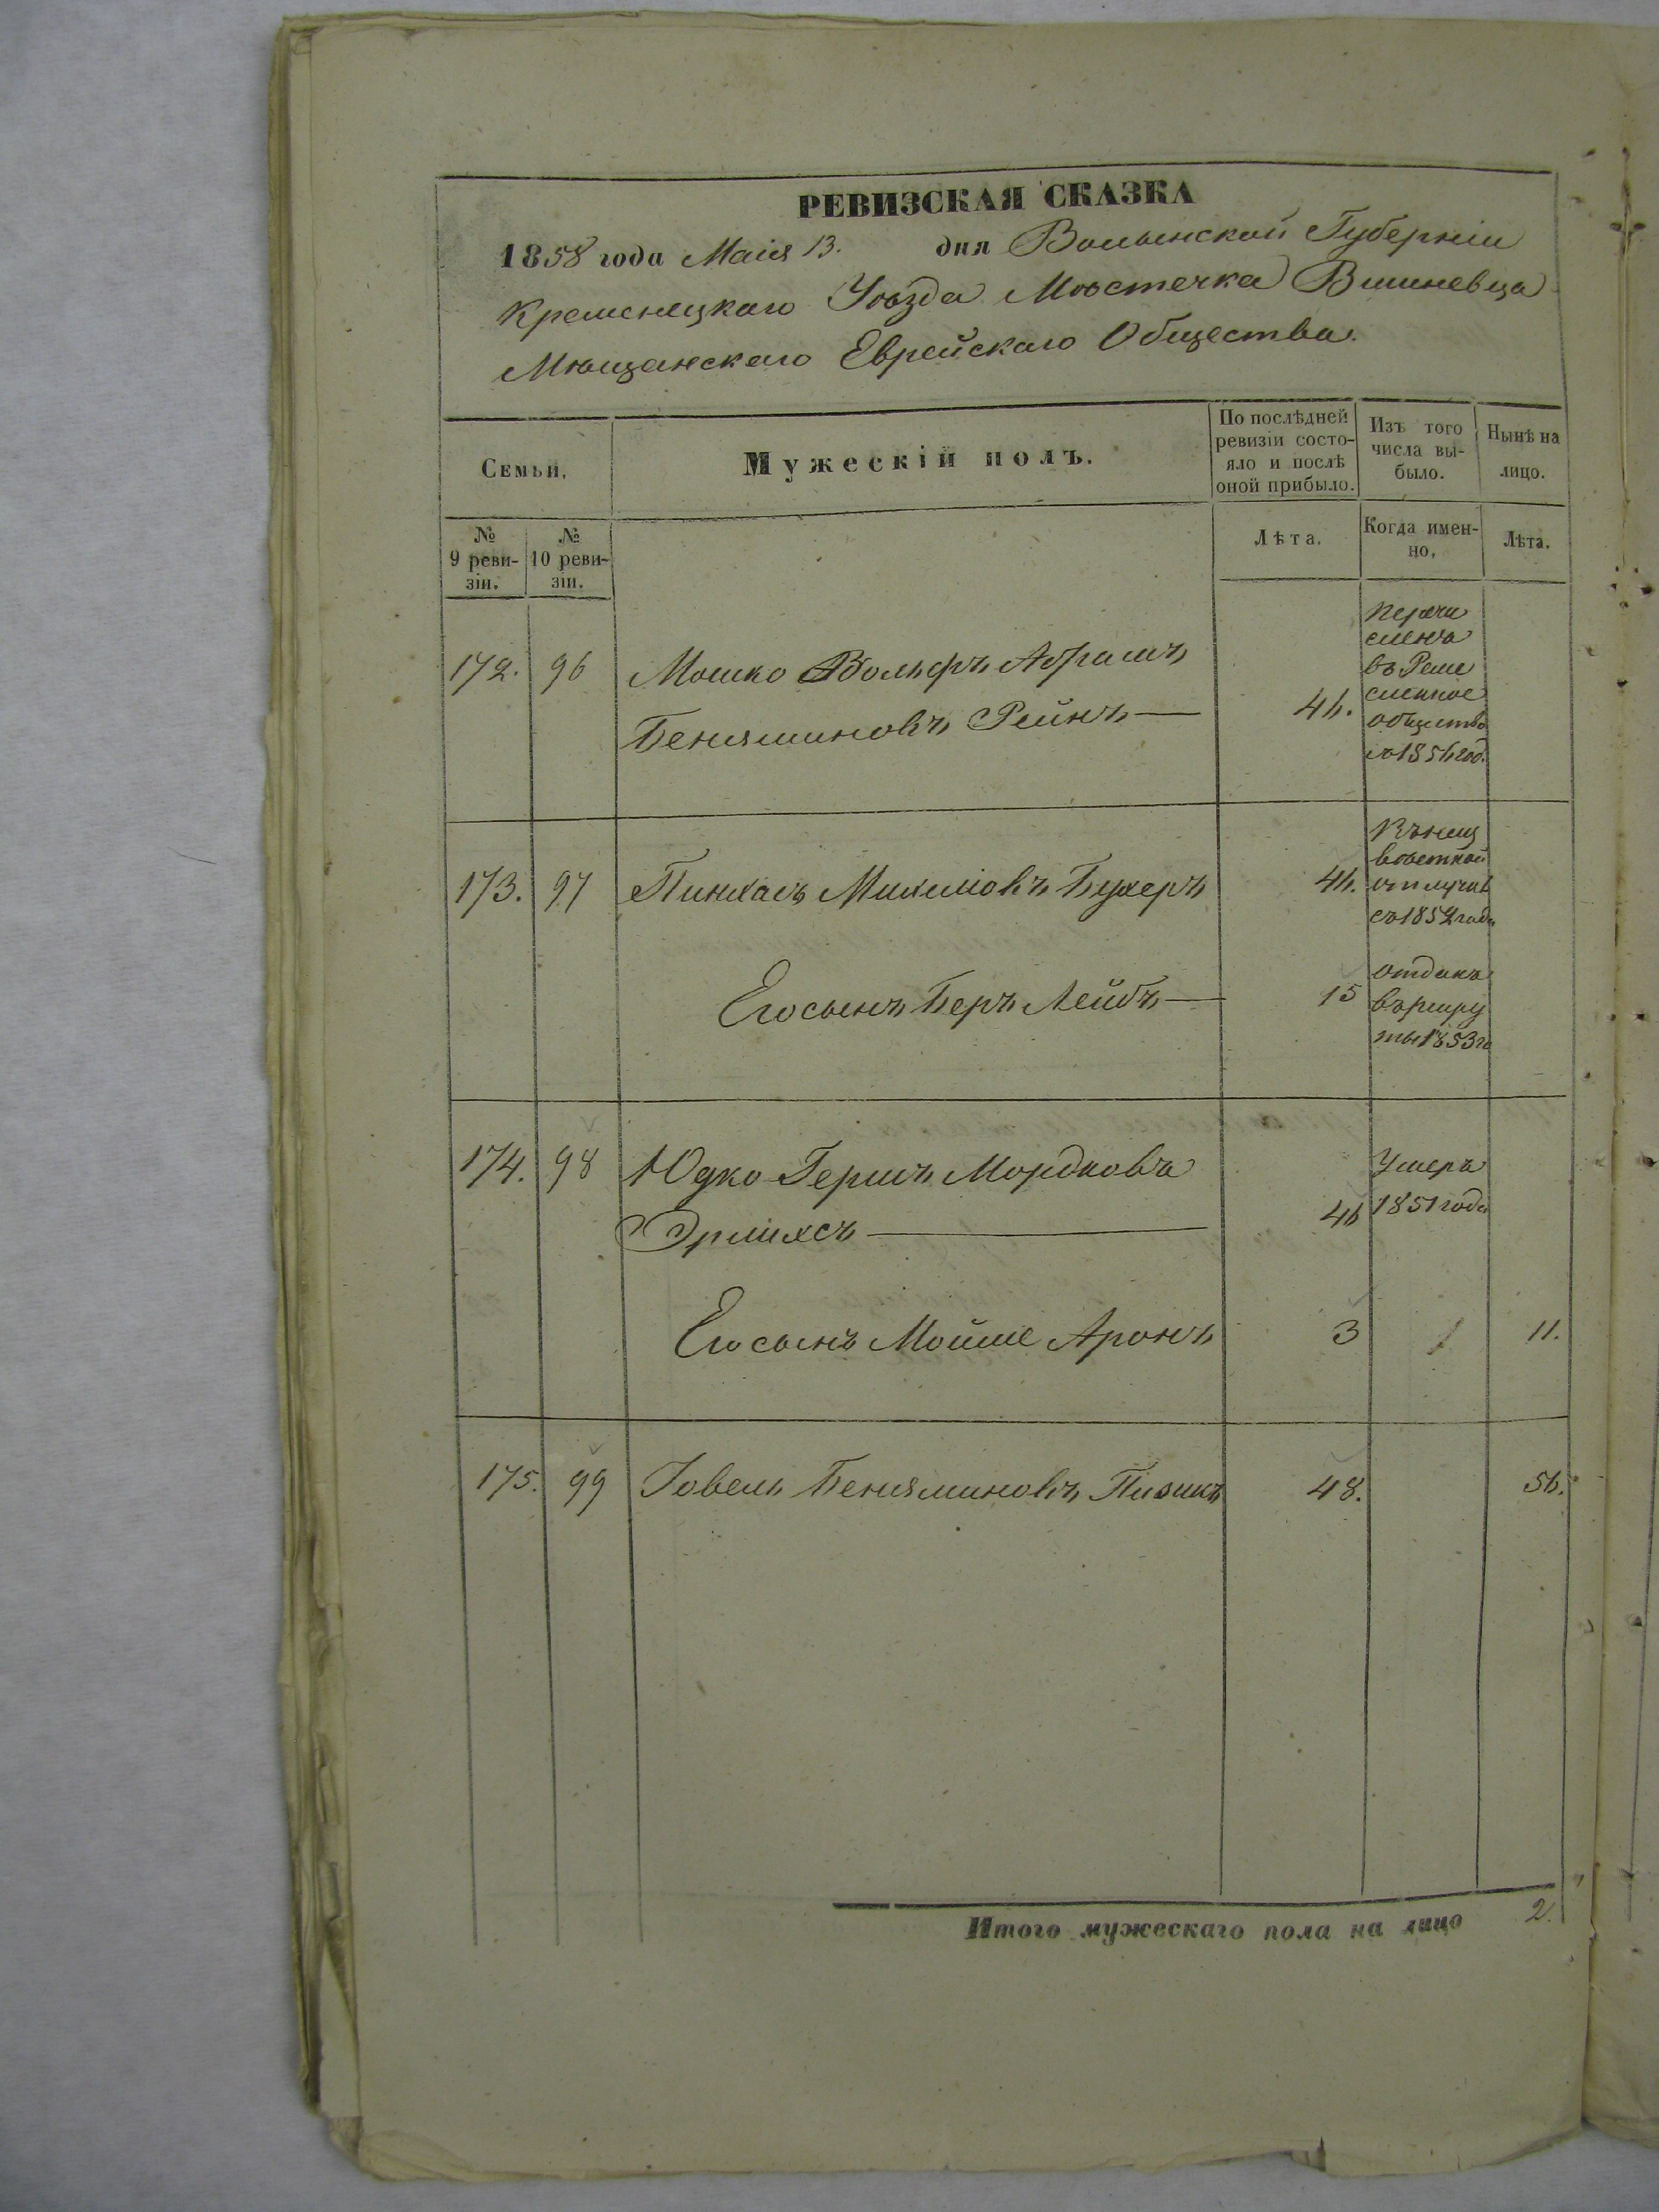 РЕВИЗСКАЯ СКАЗКА
1858 года Маія 13. дня Волынской Губерніи
Кременецкаго Уѣзда Мѣстечка Вишневца
Мѣщанскаго Еврейскаго Общества.
Семьи.
Мужескій полъ.
По послѣдней ревизіи состо-
яло и послѣ оной прибыло.
Изъ того числа вы-
было.
Нынѣ на лицо.
№ 9 реви-
зіи.
№ 10 реви-
зіи.
Лѣта.
Когда имен-
но.
Лѣта.
172. 96 Мошко Вольфъ Абрамъ
Беняминовъ Рейнъ —
Перечи
сленъ
въ Реме
сленное
общество
173. 97 Пинхасъ Михелiовъ Бухеръ
Въ неиз
вѣстной
отлучкѣ
съ 1852 года
Его сынъ Беръ Лейбъ — 15
отданъ
въ рекру
ты 1853 го
174. 98 Юдко Гершъ Мордковъ
Эрлихсъ —
Умеръ
1851 года
Его сынъ Мойше Аронъ 3 11.
175. 99 Іовель Беняминовъ 48. 56.
Итого мужескаго пола на лицо 2.